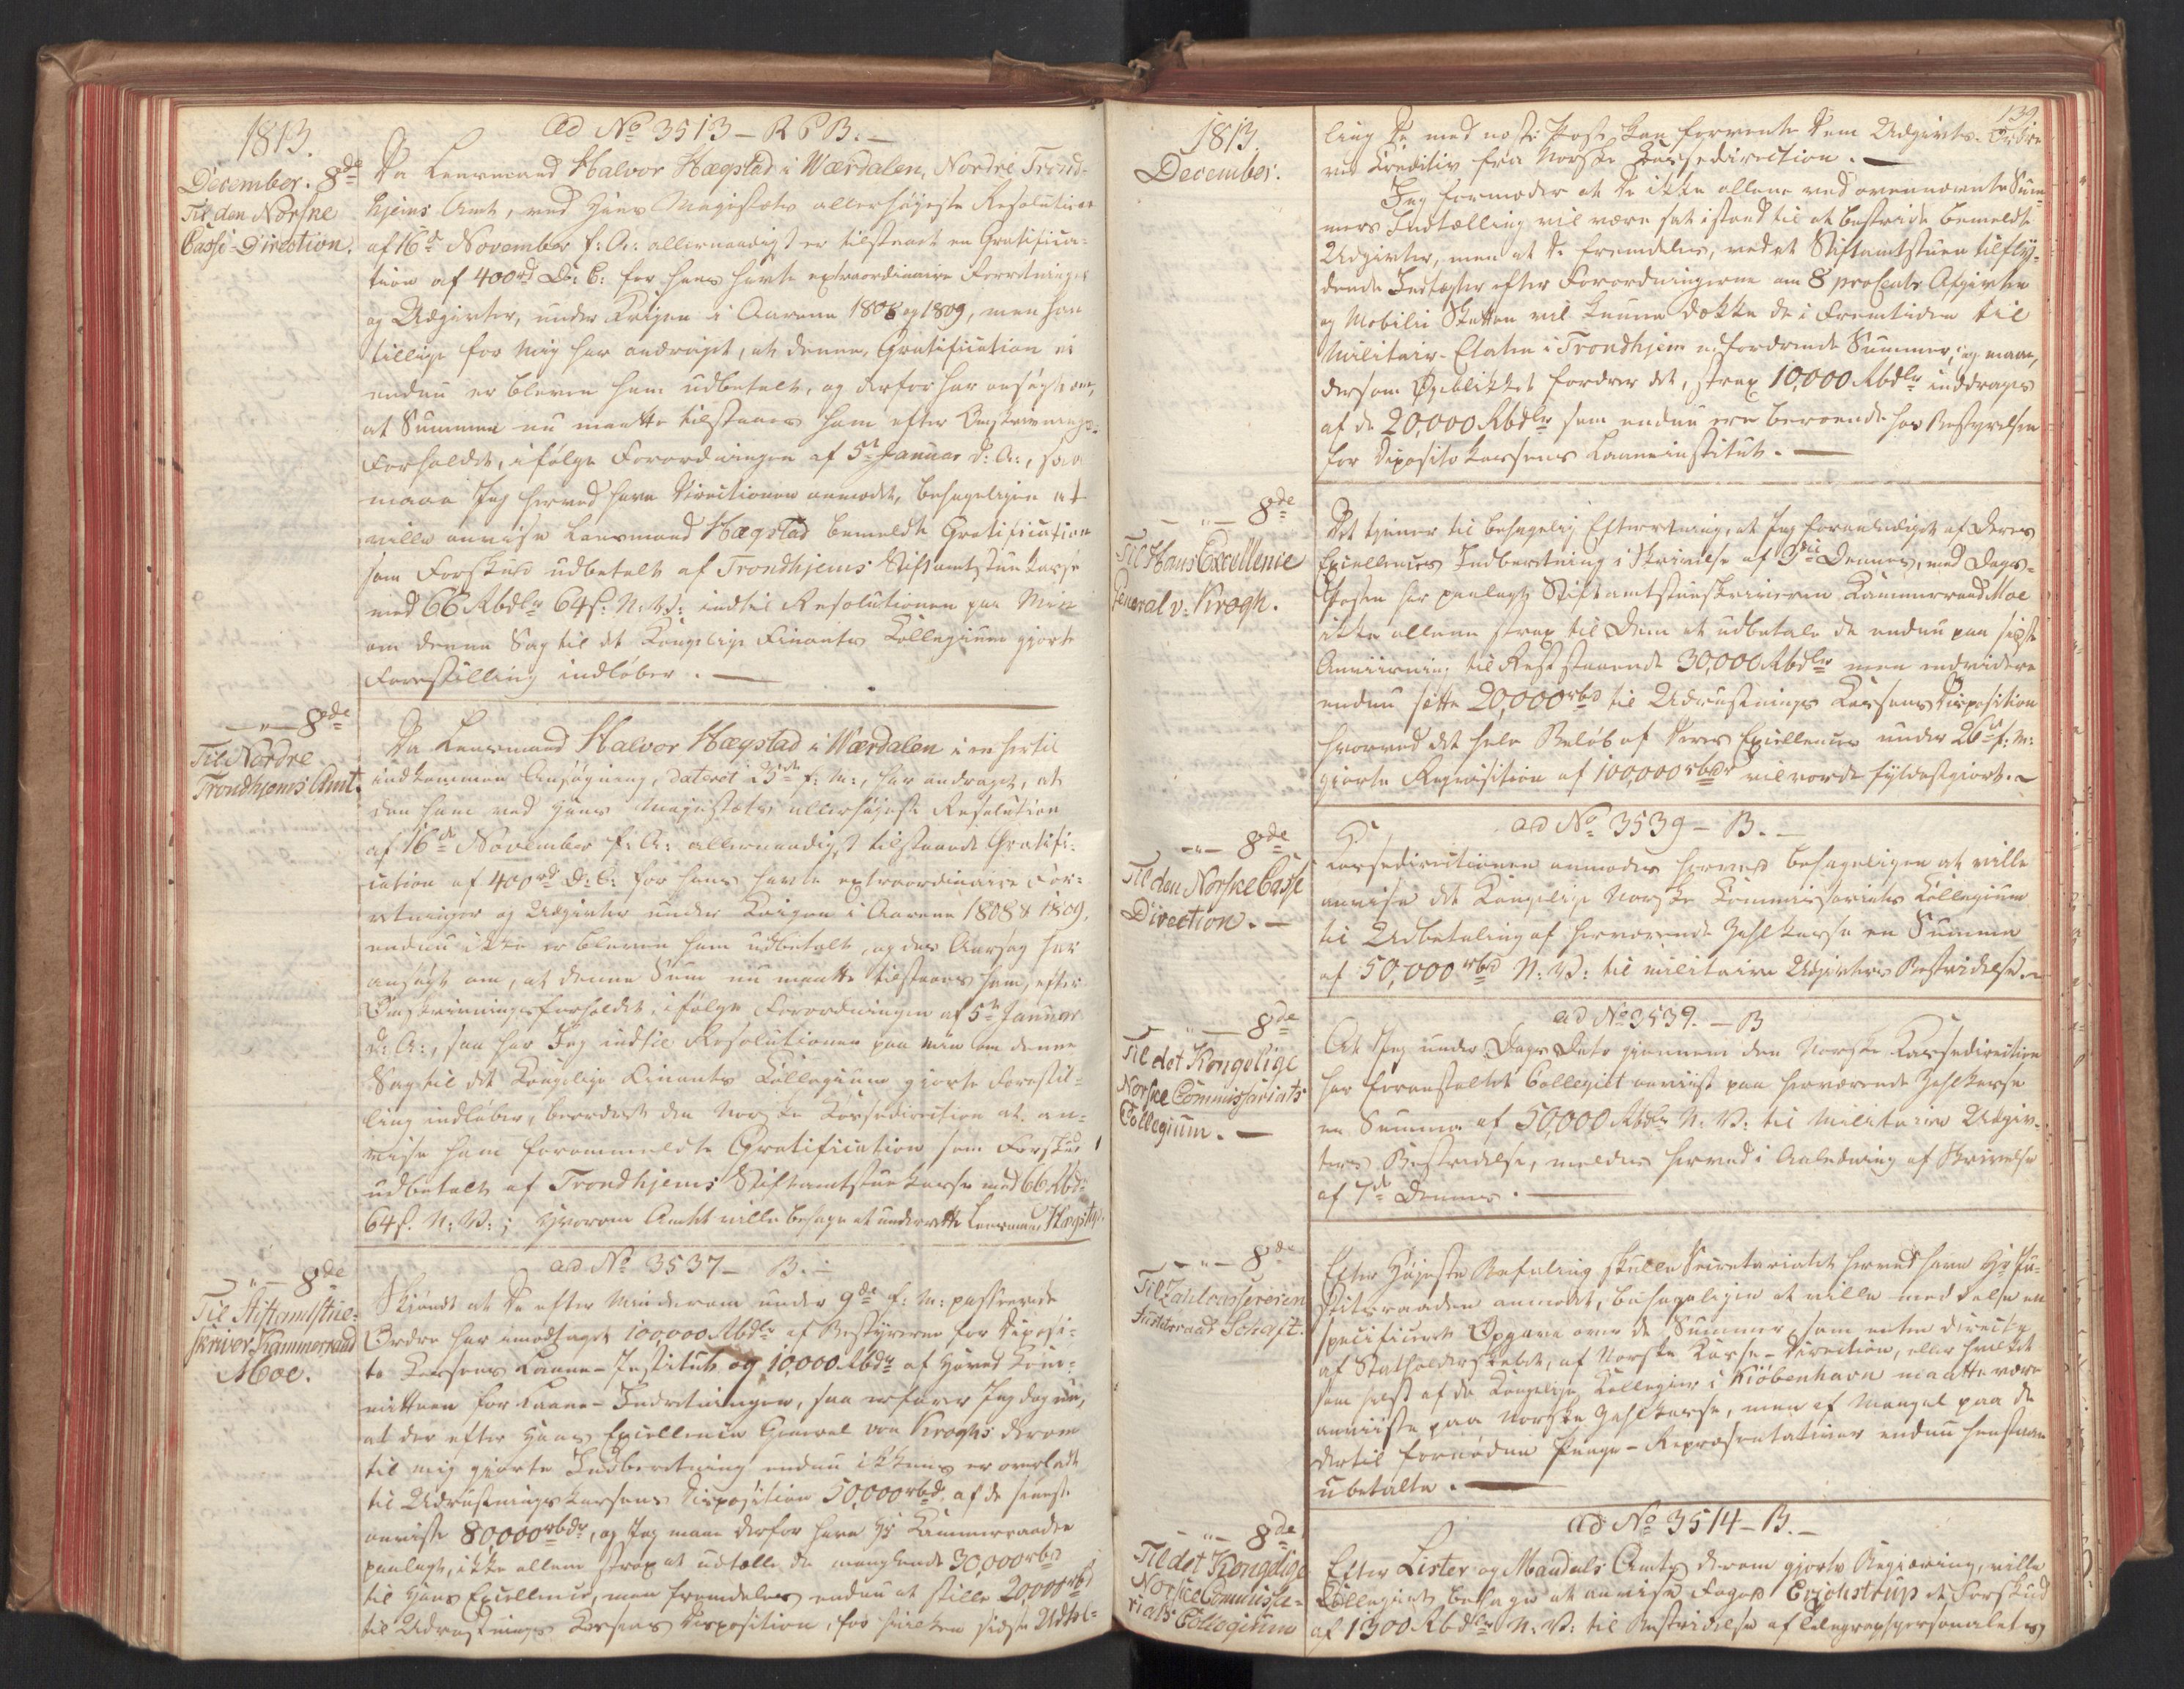 1813.
December. 8de
Til den Norske
Casse-Direction.
ad No 3513 - R P B. -
Da Lensmand Halvor Hægstad i Værdalen, Nordre Trond-
hjems Amt, ved Hans Majestæts allerhøjeste Resolution
af 16de November f: A: allernaadigst er tilstaaet en Gratifica-
tion af 400 rd D: C: for hans havte extraordinaire Forretninger
og Udgivter, under Krigen i Aarene 1808 og 1809, men han
tillige for mig har andraget, at denne Gratification ei
endnu er bleven ham udbetalt, og derfor har ansøgt om,
at Summen nu maatte tilstaaes ham efter Omskrivnings-
Forholdet, ifølge Forordningen af 5te Januar d: A:, saa
maae Jeg herved have Directionen anmodet, behageligen at
ville anvise Lensmand Hægstad bemeldte Gratification
som Forskud udbetalt af Trondhjems Stiftamtstue Kasse
med 66 Rbdlr 64 s. N: V: indtil Resolutionen paa Min
om denne Sag til det Kongelige Finants Collegium gjorte
Forestilling indløber. -
- " - 8de
Til Nordre
Trondhjems Amt.
Da Lensmand Halvor Hægstad i Værdalen i en hertil
indkommen Ansøgning, dateret 25de f: M:, har andraget, at
den ham ved Hans Majestæts allerhøjeste Resolution
af 16de November f: A: allernaadigst tilstaaede Gratifi-
cation af 400 rd D: C: for hans havte extraordinaire For-
retninger og Udgivter under Krigen i Aarene 1808 & 1809,
endnu ikke er bleven ham udbetalt, og des Aarsag har
ansøgt om, at denne Sum nu maatte tilstaaes ham, efter
Omskrivningsforholdet, ifølge Forordningen af 5te Januar
d: A:, saa har Jeg indtil Resolutionen paa min om denne
Sag til det Kongelige Finants Collegium gjorte Forestil-
ling indløber, beordret den Norske Cassedirection at an-
vise ham forommeldte Gratification som Forskud
udbetalt af Trondhjems Stiftamtstue Kasse med 66 Rbd
64 s. N: V:; Hvorom Amtet ville behage at underrette Lensmand Hægstad.
- " - 8de
Til Stiftamtstue-
skriver Kammerraad
Moe.
ad No 3537 - B. -
Skjøndt at De efter Minderom under 9de f: M: passerede
Ordre har imodtaget 100,000 Rbdlr af Bestyrerne for Deposi-
to Cassens Laane-Institut og 10,000 Rbdr af Hoved Com-
mitteen for Laane-Indretningen, saa erfarer Jeg dog nu,
at der efter Hans Excellence General von Kroghs derom
til mig gjorte Indberetning endnu ikkuns er overladt
til Udrustnings Kassens Disposition 50,000 rbd af de seneste
anviste 80,000 rbdr, og Jeg maae derfor have Hr Kammerraaden
paalagt, ikke allene strax at udtælle de manglende 30,000 rbd
til Hans Excellence, men fremdeles endnu at stille 20,000 rbd
til Udrustnings Kassens Disposition, for hvilken sidste Udtæl-
139
1813.
December.
ling De med næste Post kan forvente Dem Udgivts-Ordre
ved Creditiv fra Norske Cassedirection. -
Jeg formoder at De ikke allene ved ovennævnte Sum-
mers Indtælling vil være sat istand til at bestride bemeldte
Udgivter, men at De fremdeles, ved at Stiftamtstuen tilfly-
dende Indtægter efter Forordningerne om 8 procents Afgivten
og Mobilie Skatten vil kunne dække de i Fremtiden til
Militair-Etaten i Trondhjem udfordrende Summer, og maae,
dersom Øieblikket fordrer det, strax 10,000 Rbdlr inddrages
af de 20,000 Rbdlr som endnu ere beroende hos Bestyrelsen
for Deposito Kassens Laaneinstitut. -
- " - 8de
Til Hans Excellence
General v. Krogh.
Det tjener til behagelig Efterretning, at Jeg foranlediget af Deres
Excellences Indberetning i Skrivelse af 3die Dennes, med Dags-
Posten har paalagt Stiftamtstueskriveren Kammerraad Moe
ikke allene strax til Dem at udbetale de endnu paa sidste
Anviisning til Rest staaende 30,000 Rbdlr men endvidere
endnu sætte 20,000 rbd til Udrustnings Kassens Disposition
hvorved det hele Beløb af Deres Excellences under 26de f: M:
gjorte Reqvisition af 100,000 rbdr vil vorde fyldestgjort. -
- " - 8de
Til den Norske Casse
Direction. -
ad No 3539 - B. -
Kassedirectionen anmodes herved behageligen at ville
anvise det Kongelige Norske Commissariats Collegium
til Udbetaling af herværende Zahlkasse en Summa
af 50,000 rbd N: V: til militaire Udgivters Bestridelse. -
- " - 8de
Til det Kongelige
Norske Commissariats
Collegium. -
ad No 3539. - B
At Jeg under Dags Dato gjennem den Norske Kassedirection
har foranstaltet Collegiet anviist paa herværende Zahlkasse
en Summa af 50,000 Rbdlr N: V: til Militaire Udgiv-
ters Bestridelse, meldes herved i Anledning af Skrivelse
af 7de Dennes. -
- " - 8de
Til Zahlcassereren
Justitsraad Schaft.
Efter Højeste Befaling skulle Secretariatet herved have Hr Ju-
stitsraaden anmodet, behageligen at ville meddele en
specificeret Opgave over de Summer, som enten directe
af Statholderskabet, af Norske Kasse-Direction, eller hvilket
som helst af de Kongelige Collegier i Kiöbenhavn maatte være
anviiste paa Norske Zahlkasse, men af Mangel paa de
dertil fornødne Penge-Repræsentativer endnu henstaae
ubetalte. -
- " - 8de
Til det Kongelige
Norske Commissa-
riats Collegium
ad No 3514 - B. -
Efter Lister og Mandals Amts derom gjorte Begjæring, ville
Collegiet behage at anvise Foged Ejolistrup et Forskud
af 1300 Rbdlr N: V: til Bestridelse af Telegraphpersonalets